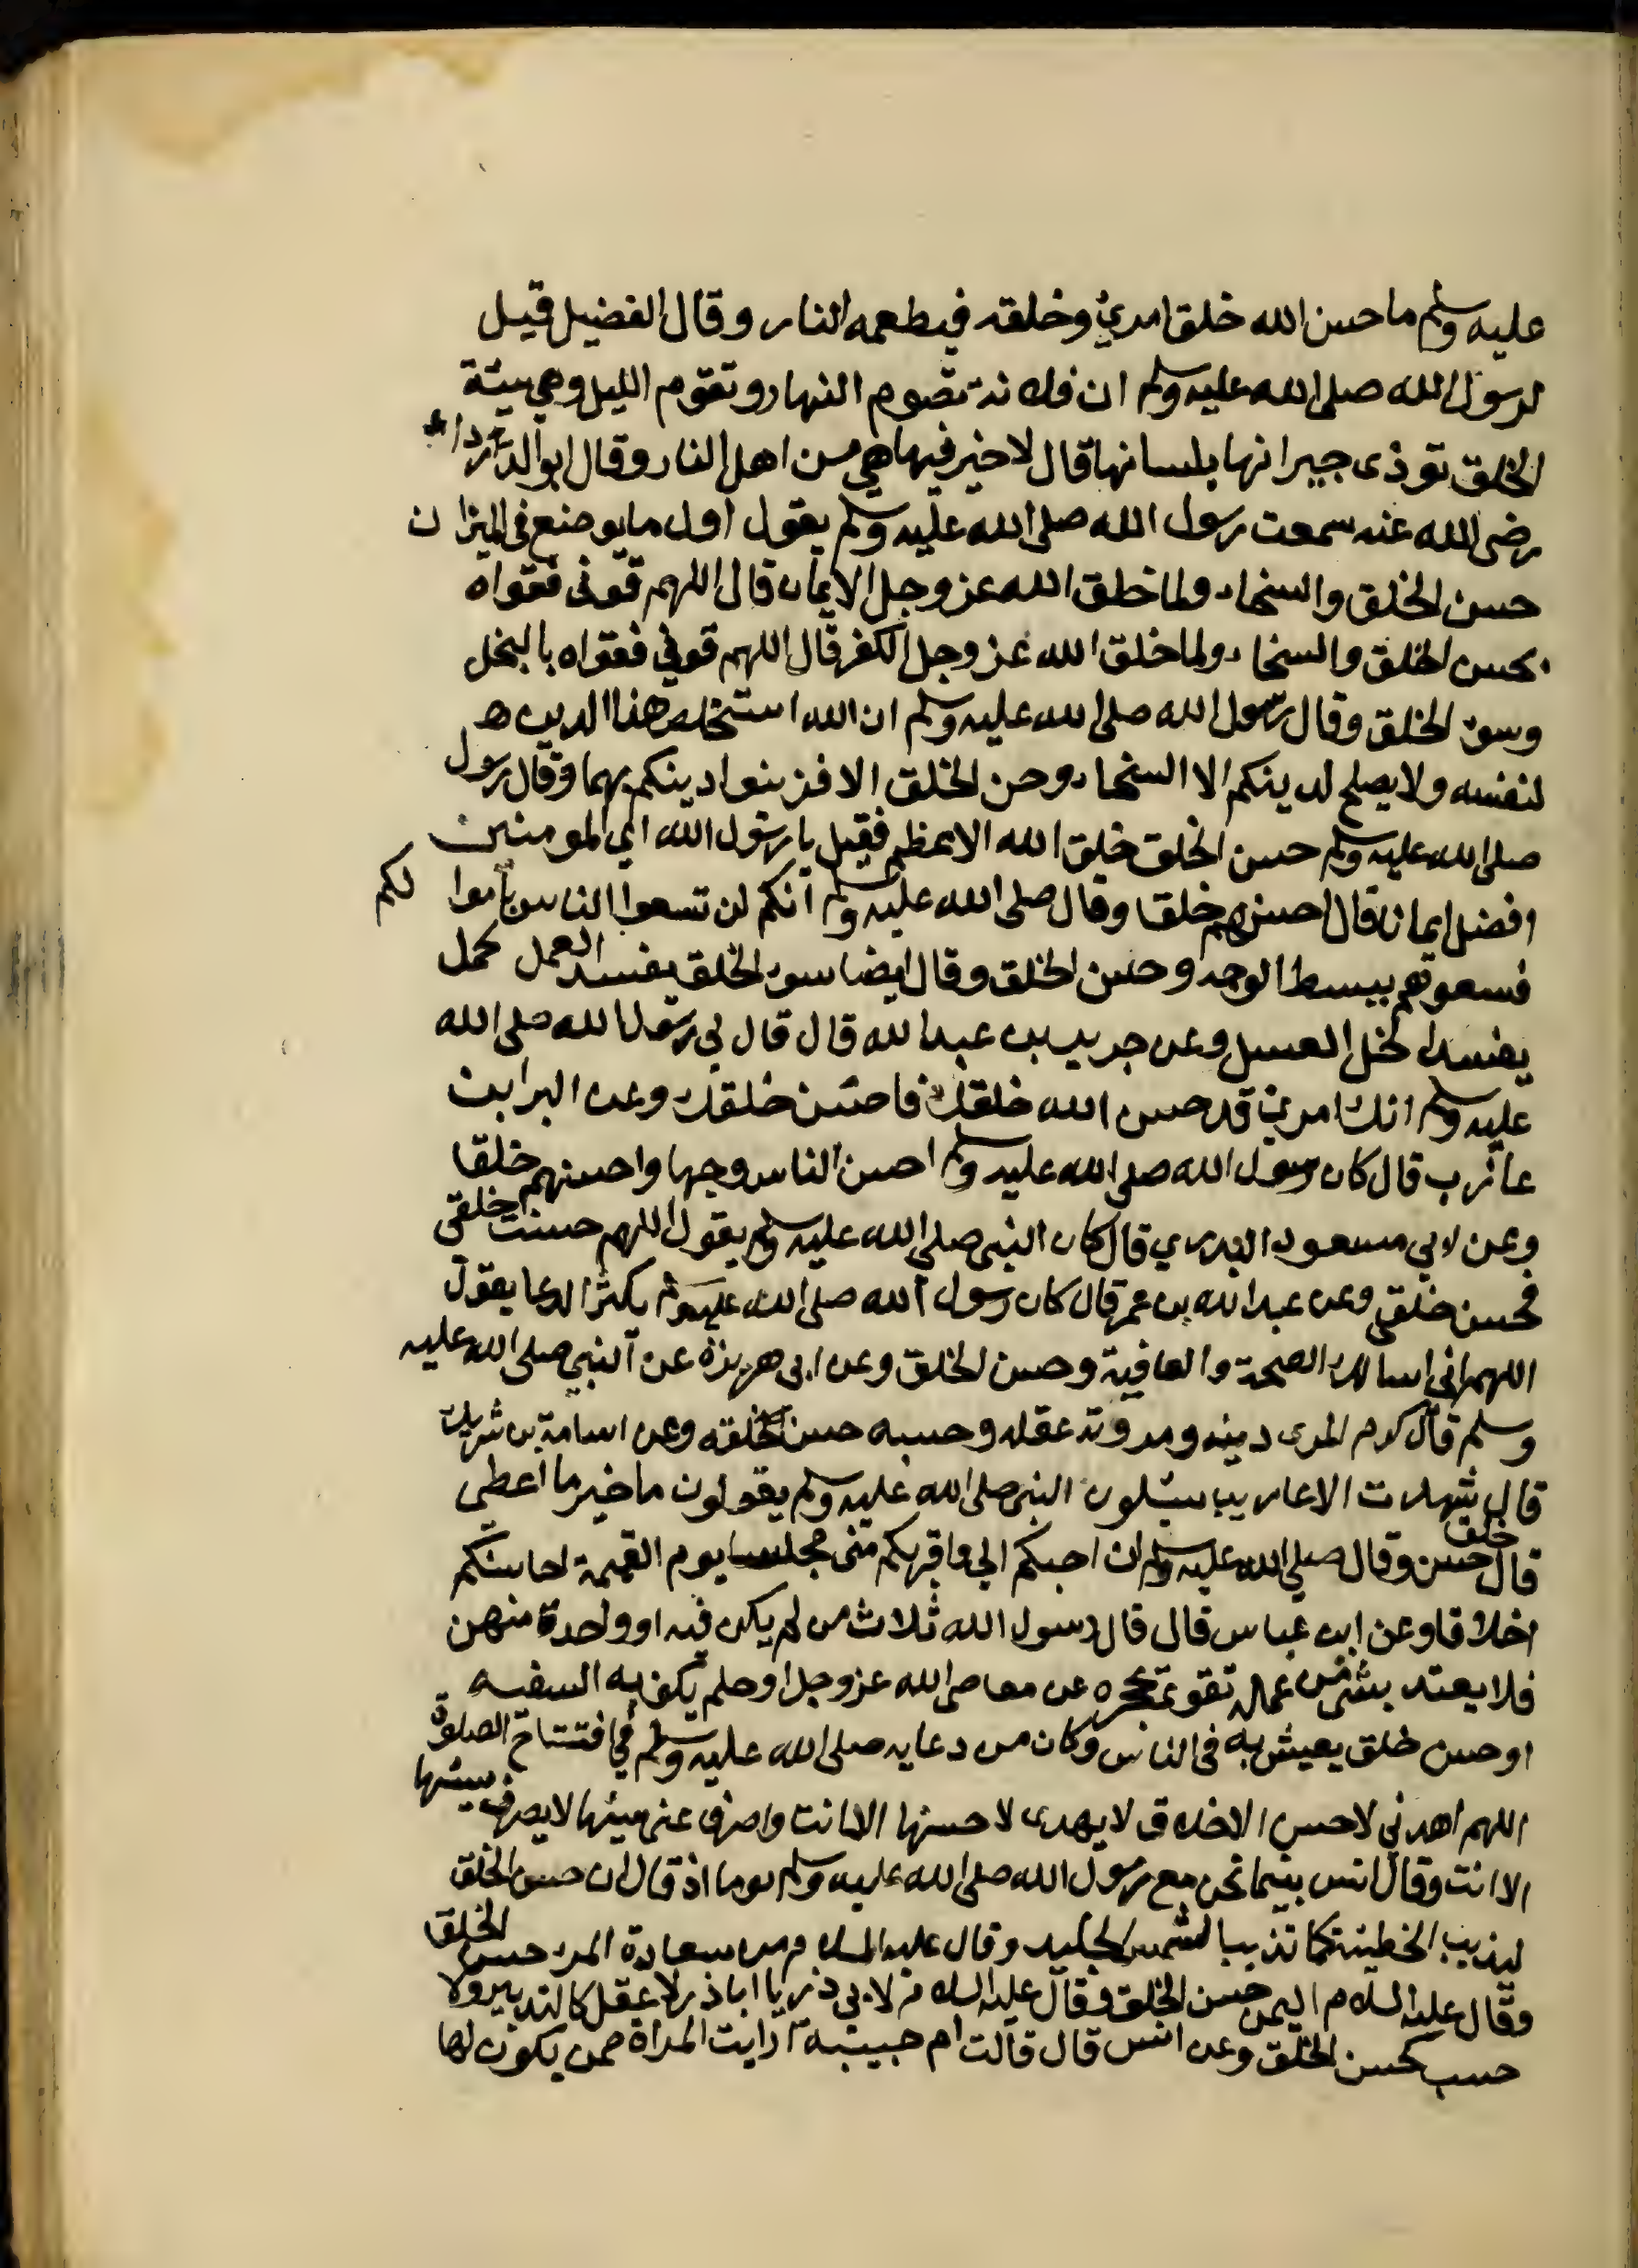 عليه وسلم ما حسن الله خلق امريء وخلقه فيطعمه النار وقال الفضيل قيل
لرسول الله صلى الله عليه وسلم ان فلانة تصوم النهار وتقوم الليل وهي سيئة
الخلق توذى جيرانها بلسانها قال لا خير فيها هي من اهل النار وقال ابو الدرداء
رضى الله عنه سمعت رسول الله صلى الله عليه وسلم يقول اول ما يوضع في الميزان
حسن الخلق والسخاء ولما خلق الله عز وجل الايمان قال اللهم قوني فقواه
بحسن الخلق والسخاء ولما خلق الله عز وجل الكفر قال اللهم قوني فقواه بالبخل
وسوء الخلق وقال رسول الله صلى الله عليه وسلم ان الله استخلص هذا الدين
لنفسه ولا يصلح لدينكم الا السخاء وحسن الخلق الا فزينوا دينكم بهما وقال رسول
صلى الله عليه وسلم حسن الخلق خلق الله الاعظم فقيل يا رسول الله اي المومنين
افضل ايمانا قال احسنهم خلقا وقال صلى الله عليه وسلم انكم لن تسعوا الناس باموالكم
فسعوهم ببسط الوجه وحسن الخلق وقال ايضا سوء الخلق يفسد العمل كما
يفسد الخل العسل وعن جرير بن عبد الله قال قال لي رسول الله صلى الله
عليه وسلم انك امرئ قد حسن الله خلقك فاحسن خلقك وعن البرا بن
عازب قال كان رسول الله صلى الله عليه وسلم احسن الناس وجها واحسنهم خلقا
وعن لابي مسعود البدري قال كان النبي صلى الله عليه وسلم يقول اللهم حسنت خلقي
فحسن خلقي وعن عبد الله بن عمر قال كان رسول الله صلى الله عليه وسلم يكثر الدعا يقول
اللهم اني اسالك الصحة والعافية وحسن الخلق وعن ابي هريرة عن النبي صلى الله عليه
وسلم قال كرم المرئ دينه ومروته عقله وحسبه حسن خلقه وعن اسامة بن شريك
قال شهدت الاعاريب يسئلون النبي صلى الله عليه وسلم يقولون ما خير ما اعطى
قال خلق حسن وقال صلى الله عليه وسلم ان احبكم الي واقربكم منى مجلسا يوم القيمة احاسنكم
اخلاقا وعن ابن عباس قال قال رسول الله ثلاث من لم يكن فيه او واحدة منهن
فلا يعتد بشئ من عمله تقوى تحجزه عن معاصي الله عز وجل او حلم يكف به السفيه
او حسن خلق يعيش به في الناس وكان من دعايه صلى الله عليه وسلم في افتتاح الصلوة
اللهم اهدني لاحسن الاخلاق لا يهدى لاحسنها الا انت واصرف عني سيئها لا يصرف سيئها
الا انت وقال انس بينما نحن مع رسول الله صلى الله عليه وسلم يوما اذ قال ان حسن الخلق
ليذيب الخطيئة كما تذيب الشمس الجليد وقال عليه السلام من سعادة المرء حسن الخلق
وقال عليه السلام اليمن حسن الخلق وقال عليه السلام لابي ذر يا ابا ذر لا عقل كالتدبير ولا
حسب كحسن الخلق وعن انس قال قالت ام حبيبة ارايت المراة ممن يكون لها